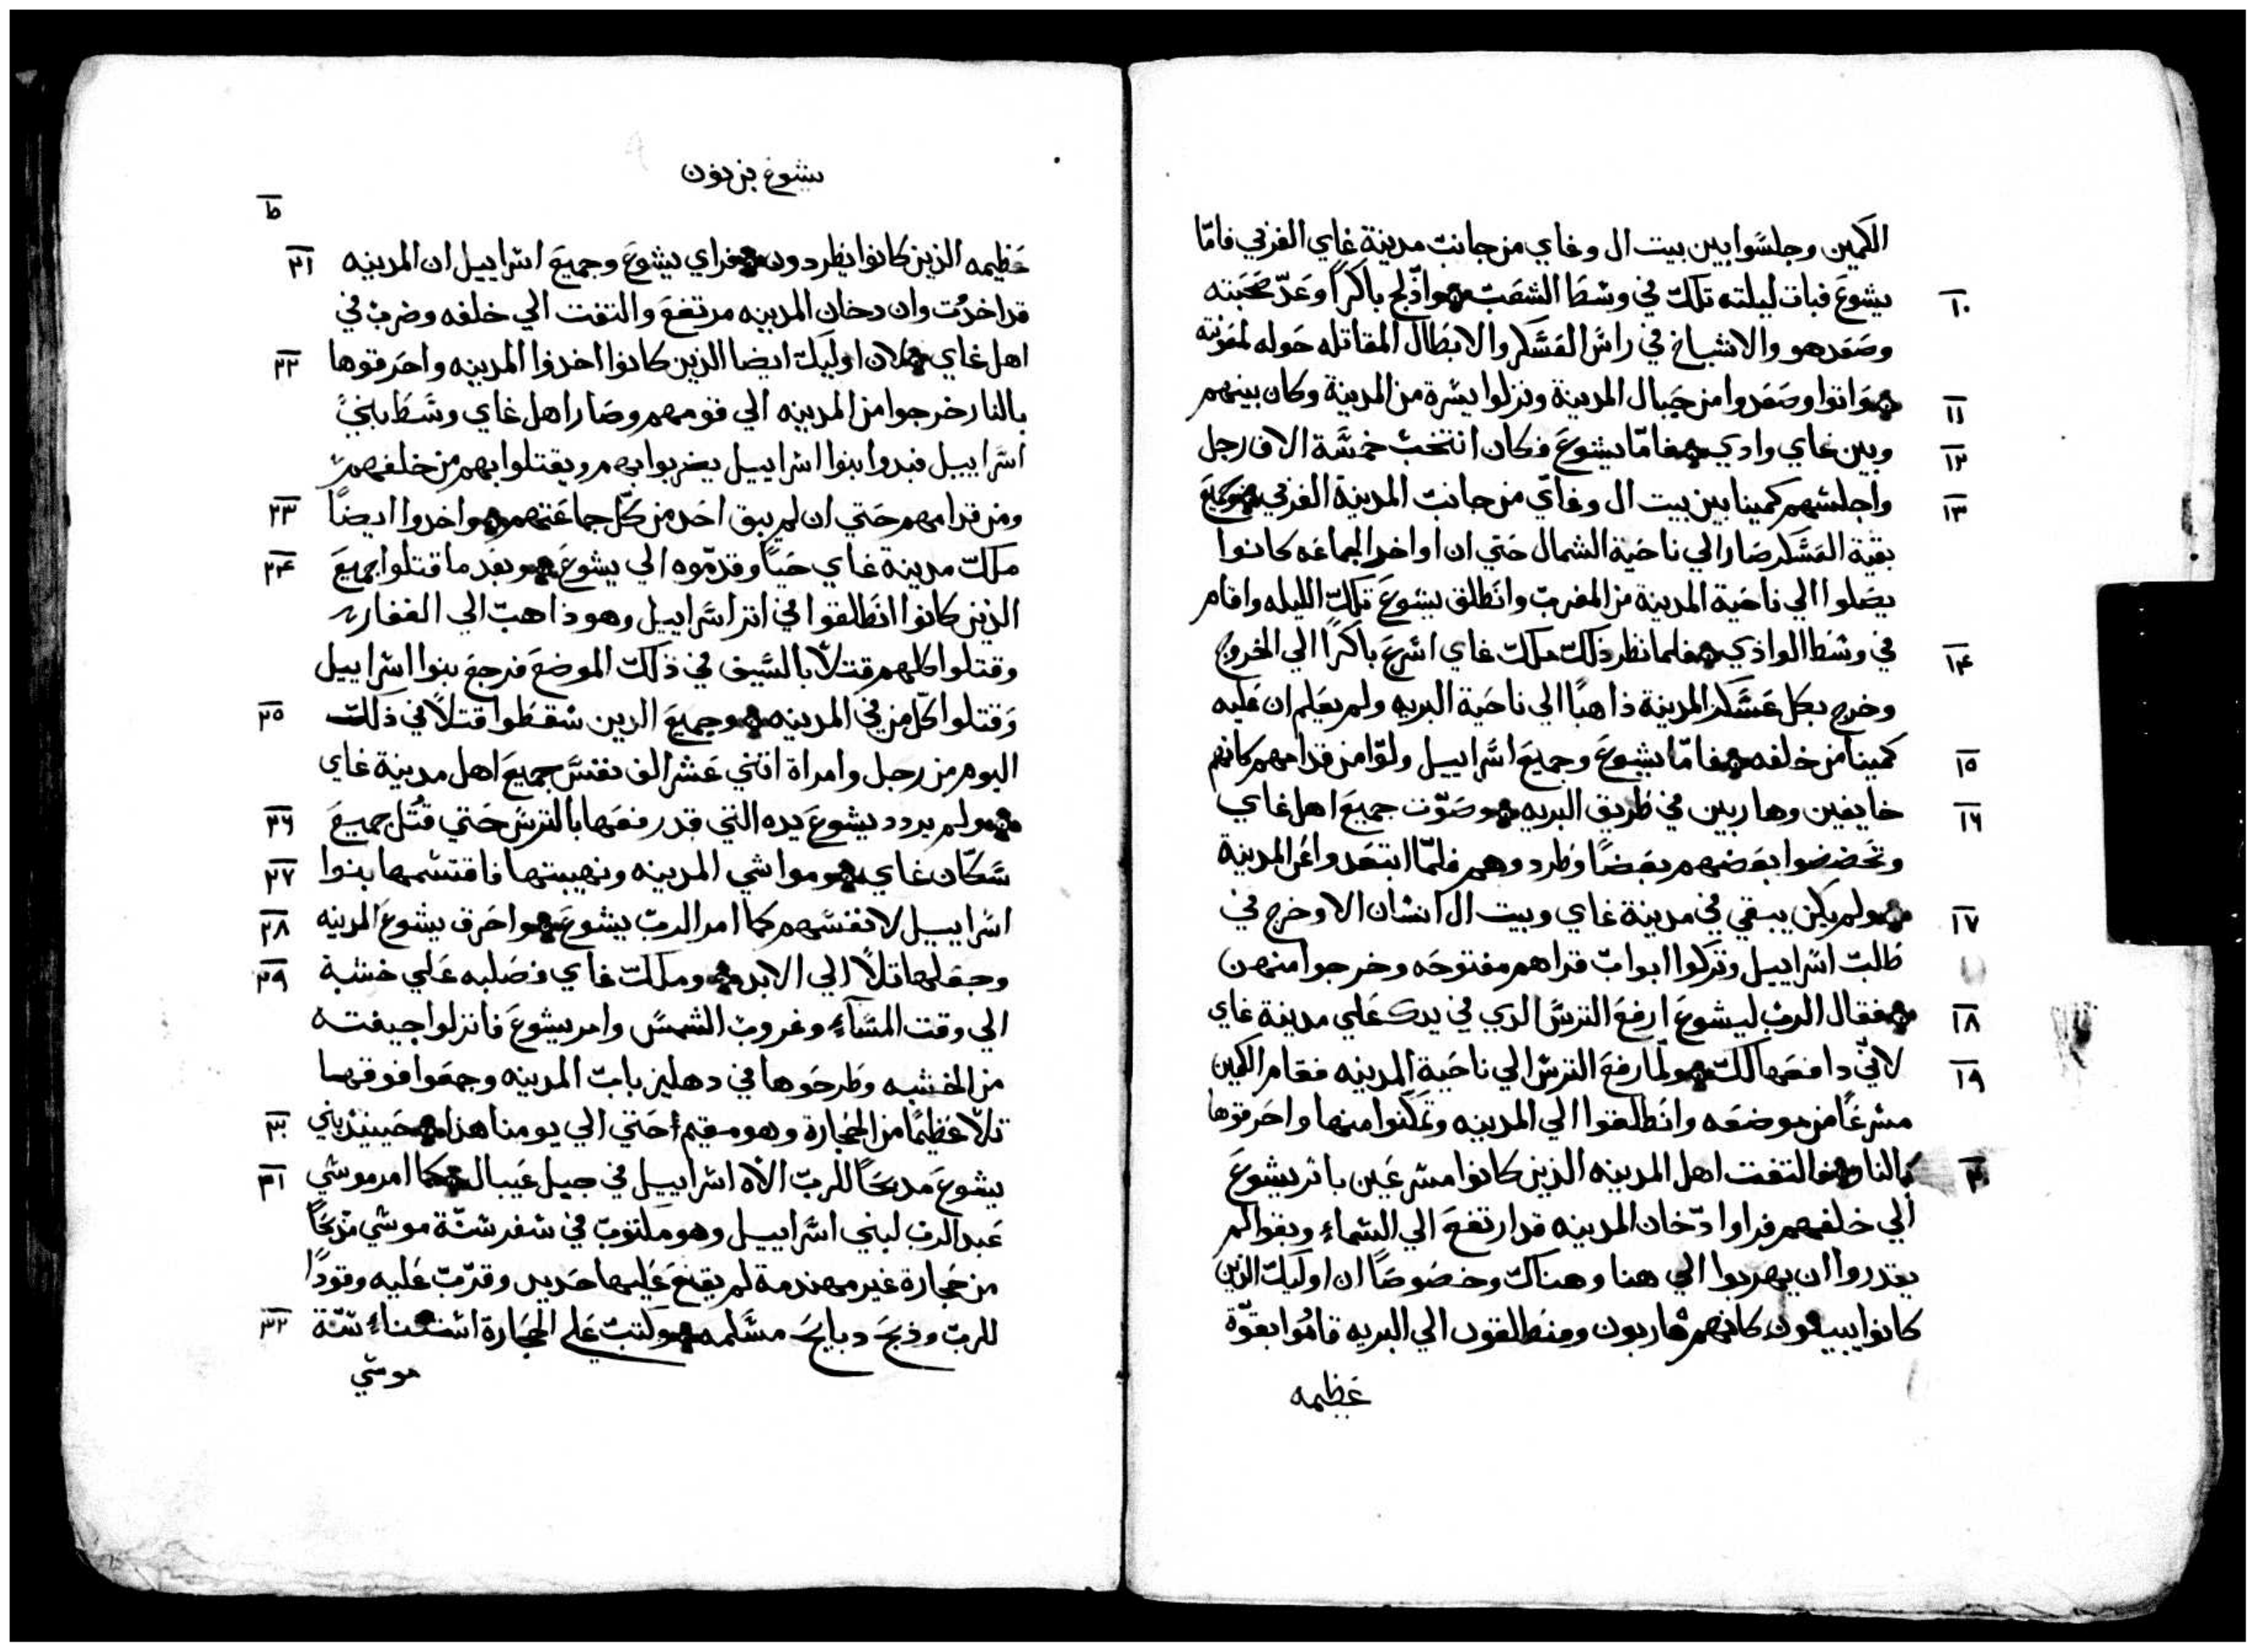 الكمين وجلسوا بين بيت ال وغاي من جانب مدينة غاي الغربي فامّا
١٠ يشوع فبات ليلته تلك في وسط الشعب وادّلج باكراً وعدّ صحبته
وصعد هو والاشياخ في راس العسكر والابطال المقاتله حوله لمعونته
١١ واتوا وصعدوا من جبال المدينة ونزلوا يسرة من المدينة وكان بينهم
١٢ وبين غاي وادي فامّا يشوع فكان انتخب خمسة الاف رجل
١٣ واجلسهم كمينا بين بيت ال وغاي من جانب المدينة الغربي وجميع
بقية العسكر صار الي ناحية الشمال حتي ان اواخر الجماعه كانوا
يصلوا الي ناحية المدينة من المغرب وانطلق يشوع تلك الليله واقام
١٤ في وسط الوادي فلما نظر ذلك ملك غاي اسرع باكرًا الي الخروج
وخرج بكل عسكر المدينة ذاهبًا الي ناحية البريه ولم يعلم ان عليه
١٥ كمينا من خلفه فامّا يشوع وجميع اسراييل ولوا من قدامهم كانهم
١٦ خايفين وهاربين في طريق البريه وصوّت جميع اهل غاي
وتحضضوا بعضهم بعضًا وطردوهم فلمّا ابتعدوا عن المدينة
١٧ ولم يكن يبقي في مدينة غاي وبيت ال انسان الا وخرج في
طلب اسراييل وتركوا ابواب قراهم مفتوحه وخرجوا منهن
١٨ فقال الرب ليشوع ارفع الترس الدي في يدك علي مدينة غاي
١٩ لانّي دافعها لك ولمّا رفع الترس الي ناحية المدينه فقام الكمين
مسرعًا من موضعه وانطلقوا الي المدينه وتمكنوا منها واحرقوها
٢٠ بالنار فالتفت اهل المدينه الذين كانوا مسرعين باثر يشوع
الي خلفهم فراوا دخان المدينه قد ارتفع الي السماء وبقوا لم
يقدروا ان يهربوا الي هنا وهناك وخصوصًا ان اوليك الذين
كانوا يبيعون كانهم هاربون ومنطلقون الي البريه قاموا بقوّة
عظيمه
يشوع بن نون
ط
٢١ عظيمه الذين كانوا يطردون فراي يشوع وجميع اسراييل ان المدينه
قد اخدت وان دخان المدينه مرتفع والتفت الي خلفه وضرب في
٢٢ اهل غاي لان اوليك ايضا الذين كانوا اخدوا المدينه واحرقوها
بالنار خرجوا من المدينه الي قومهم وصار اهل غاي وسط بني
اسراييل فبدوا بنوا اسراييل يضربوا بهم ويقتلوا بهم من خلفهم
٢٣ ومن قدامهم حتي ان لم يبق احد من كلّ جماعتهم واخدوا ايضاً
٢٤ ملك مدينة غاي حيّاً وقدّموه الي يشوع وبعد ما قتلوا جميع
الذين كانوا انطلقوا في اتر اسراييل وهو ذاهب الي القفار
وقتلوا كلهم قتلاً بالسيف في ذلك الموضع فرجع بنوا اسراييل
٢٥ وقتلوا كلّ من في المدينه وجميع الدين سقطوا قتلاً في ذلك
اليوم من رجل وامراة اثني عشر الف نفس جميع اهل مدينة غاي
٢٦ ولم يردد يشوع يده التي قد رفعها بالترس حتي قُتل جميع
٢٧ سكّان غاي ومواشي المدينه ونهيبتها فاقتسمها بنوا
٢٨ اسراييل لانفسهم كما امر الربّ يشوع واحرق يشوع المدينه
٢٩ وجعلها تلاً الي الابد وملك غاي فصلبه علي خشبة
الي وقت المساء وغروب الشمس وامر يشوع فانزلوا جيفته
من الخشبه وطرحوها في دهليز باب المدينه وجمعوا فوقها
٣٠ تلاّ عظيمًا من الحجارة وهو مقيم حتي الي يومنا هذا حينيذ بني
٣١ يشوع مدبحًا للربّ الاه اسراييل في جبل عيبال كما امر موسي
عبد الرب لبني اسراييل وهو مكتوب في سفر سنّة موسي مدبحًا
من حجارة غير مهندمة لم يقع عليها حديد وقرّب عليه وقودًا
٣٢ للربّ وذبح دبايح مسلمه وكتب علي الحجارة استثناء سنّة
موسي